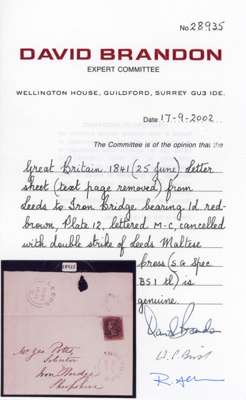 No. 28935
DAVID BRANDON
EXPERT COMMITTEE
WELLINGTON HOUSE, GUILDFORD, SURREY GU3 1DE.
Date 17-9-2002
The Committee is of the opinion that the
Great Britain 1841 (25 June) Letter
sheet (text page removed) from
Leeds to Iron Bridge bearing 1d red-
brown, Plate 12, lettered M-C, cancelled
with double strike of Leeds Maltese
Cross (S.G Spec
BS1 tl) is
genuine
David Brandon
Mr Geo Potts
Solicitor
Iron Bridge
Shropshire